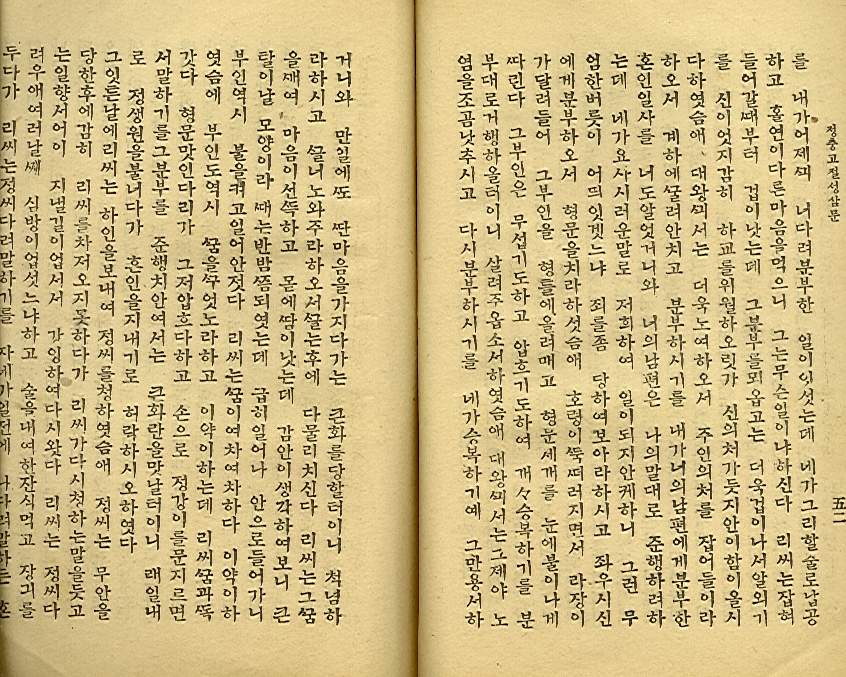 정충고전성삼문
五二
를 내가어제ᄭᅴ 너다려분부한 일이잇섯는데 네가그리할술로납공
하고 홀연이다른마음을먹으니 그는무슨일이냐하신다 리씨는잡혀
들어갈ᄯᅢ부터 겁이낫는데 그분부를뫼옵고는 더욱겁이나서알외기
를 신이엇지감히 하교를위월하오릿가 신의처가듯지안이함이올시
다하엿슴애 대왕ᄭᅴ서는 더욱노여하오서 주인의처를 잡어들이라
하오서 계하에ᄭᅮᆯ려안치고 분부하시기를 내가너의남편에게분부한
혼인일사를 너도알엇거니와 너의남편은 나의말대로 준행하려하
는데 네가요사시러운말로 저희하여 일이되지안케하니 그런 무
엄한버릇이 어듸잇겟느냐 죄를좀 당하여보아라하시고 좌우시신
에게분부하오서 형문을치라하섯슴애 호령이ᄯᅮᆨᄯᅥ러지면서 라장이
가달려들어 그부인을 형틀에올려매고 형문세개를 눈에불이나게
ᄯᅡ린다 그부인은 무섭기도하고 압흐기도하여 개々승복하기를 분
부대로거행하올터이니 살려주옵소서하엿슴애 대왕ᄭᅴ서는그제야 노
염을조곰낫추시고 다시분부하시기를 네가승복하기예 그만용서하
거니와 만일에ᄯᅩ ᄯᅡᆫ마음을가지다가는 큰화를당할터이니 척념하
라하시고 ᄭᅳᆯ너노와주라하오서ᄭᅳᆯ는후에 다물리치신다 리씨는그ᄭᅮᆷ
을ᄭᅢ여 마음이선ᄯᅳᆨ하고 몸에ᄯᅡᆷ이낫는데 감안이생각하여보니 큰
탈이날 모양이라 ᄯᅢ는반밤ᄶᅳᆷ되엿는데 급히일어나 안으로들어가니
부인역시 불을켜고일어안젓다 리씨는ᄭᅮᆷ이여차여차하다 이약이하
엿슴에 부인도역시 ᄭᅮᆷ을ᄭᅮ엇노라하고 이약이하는데 리씨ᄭᅮᆷ과ᄯᅩᆨ
갓다 형문맛인다리가 그저압흐다하고 손으로 정강이를문지르면
서말하기를그분부를 준행치안여서는 큰화란을맛날터이니 래일내
로 정생원을불너다가 혼인을지내기로 허락하시오하엿다
그잇튼날에리씨는 하인을보내여 정씨를청하엿슴애 정씨는 무안을
당한후에감히 리씨를차저오지못하다가 리씨가다시청하는말을듯고
는일향서어이 지낼길이업서서 가잉하여다시왓다 리씨는 정씨다
려우애여러날ᄶᅢ 심방이업섯느냐하고 술을내여한잔식먹고 장긔를
두다가 리씨는정씨다려말하기를 자네가일전에 나다려말하든 혼